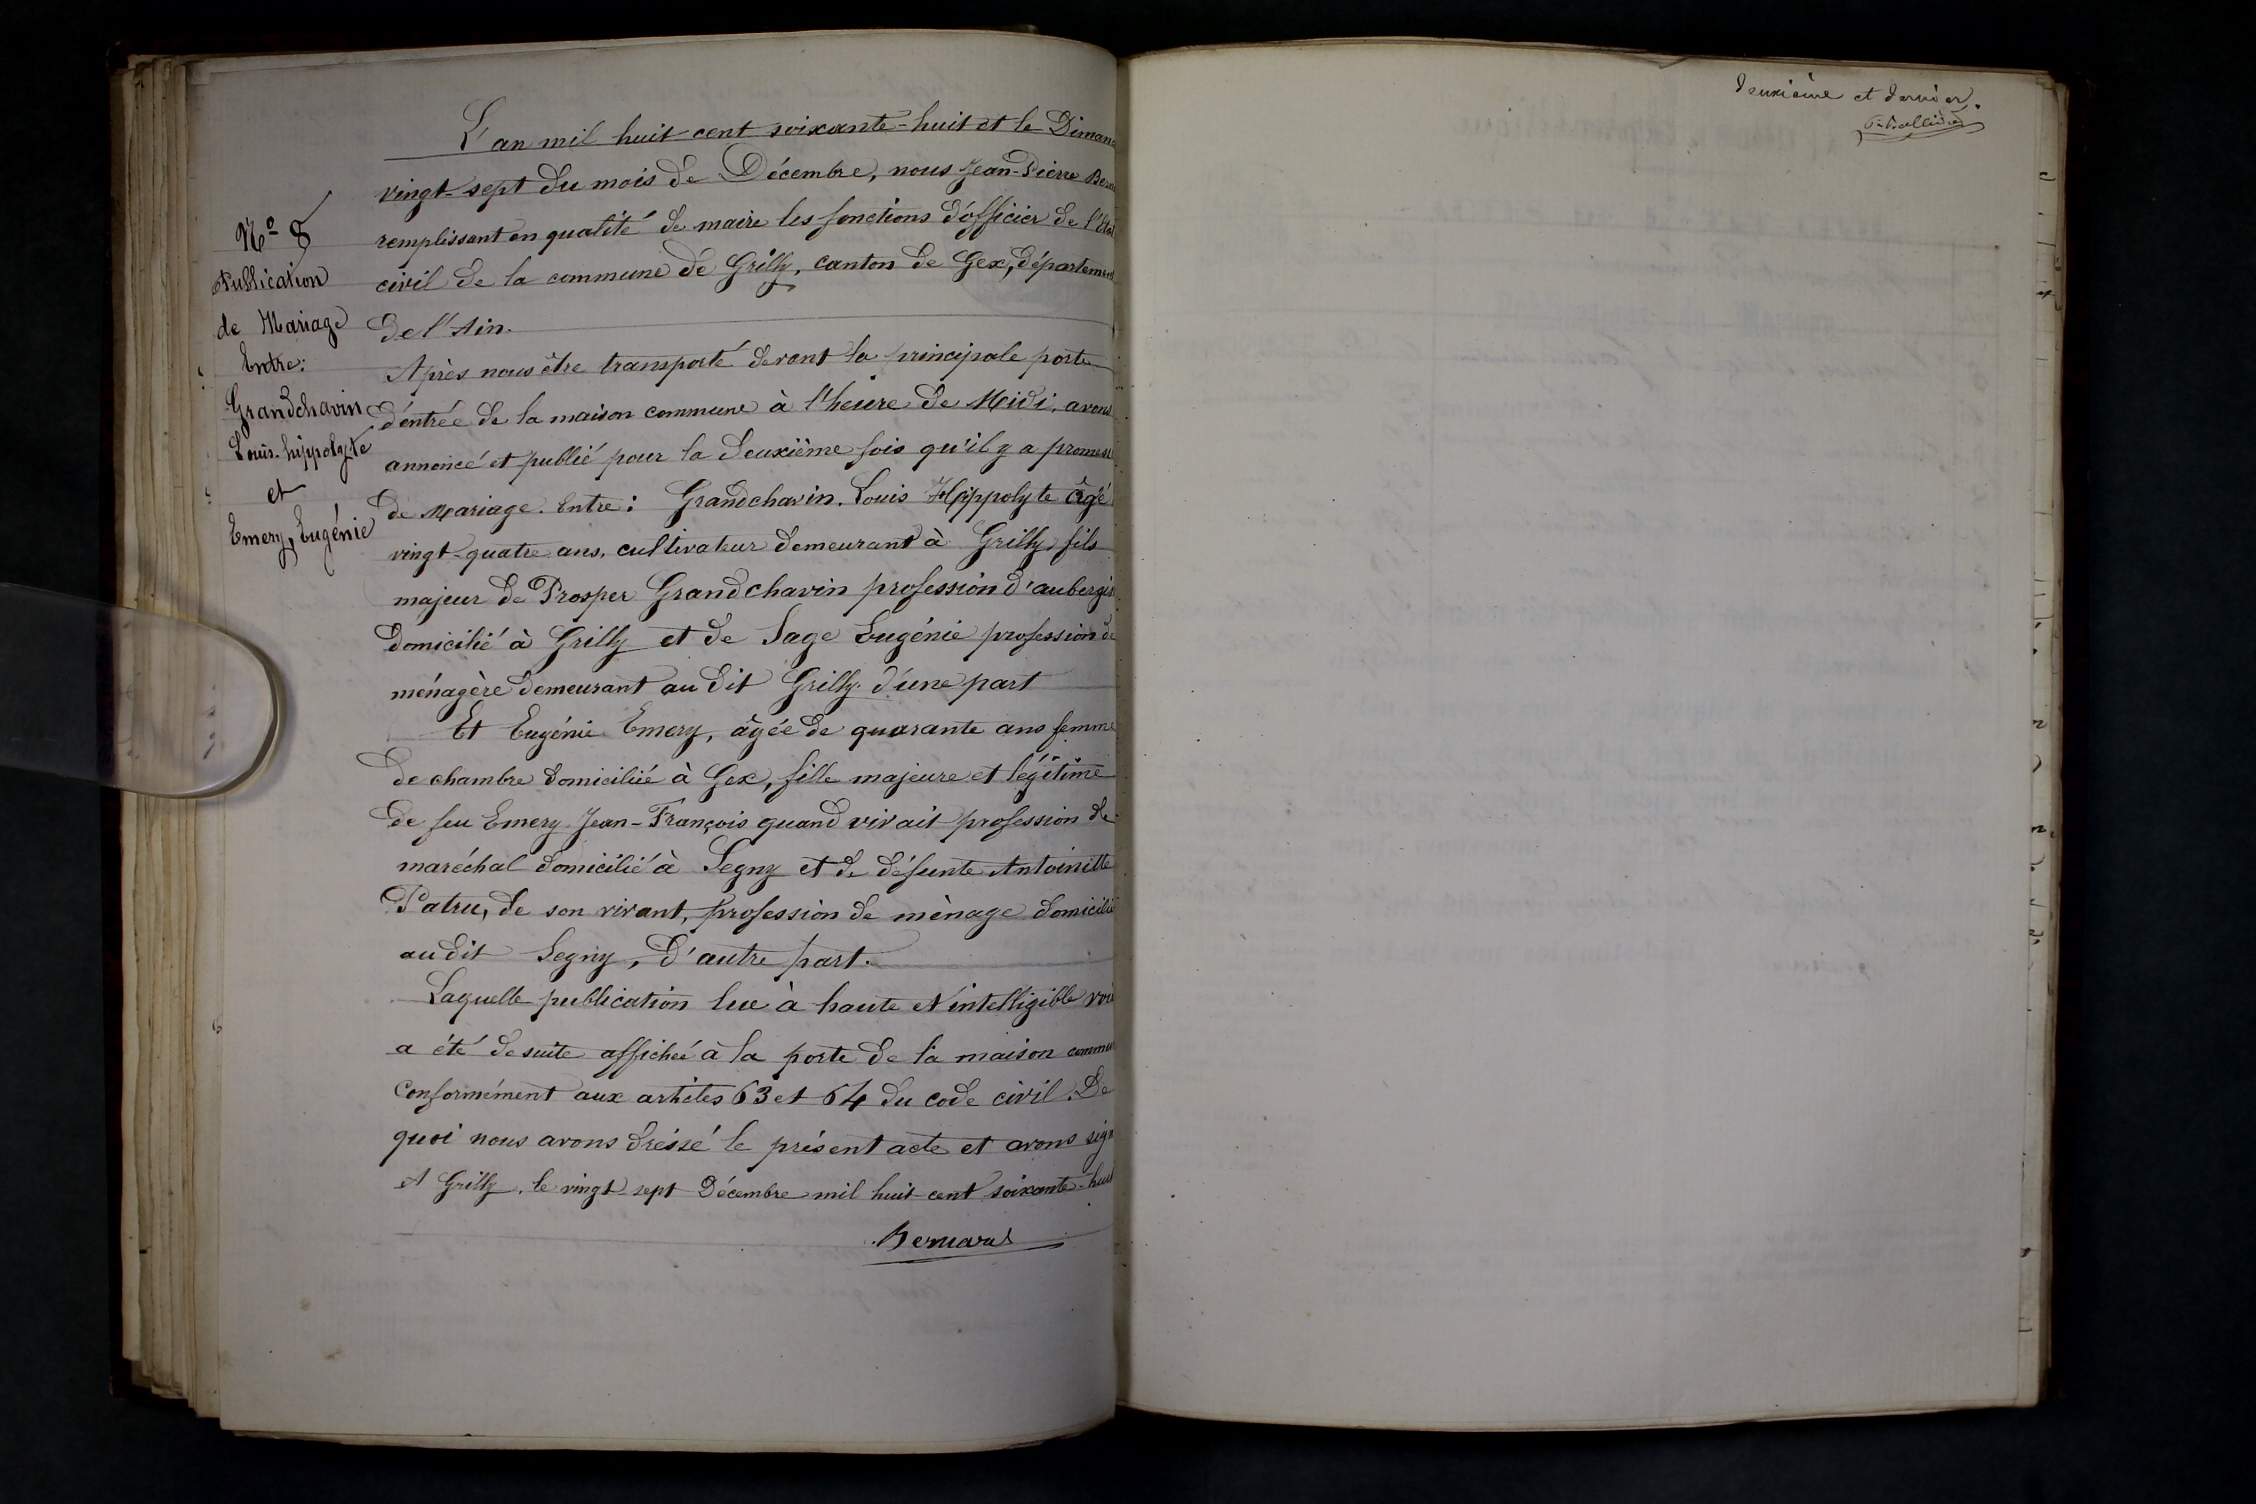 N° 8
Publication
de Mariage
Entre:
Grandchavin
Louis-hippolyte
et
Emery, Eugénie
L'an mil huit cent soixante-huit et le Diman
vingt-sept du mois de Décembre, nous Jean-Pierre Bern
remplissant en qualité de maire les fonctions d'officier de l'Etat
civil de la commune de Grilly, canton de Gex, département
de l'Ain.
Après nous être transporté devant la principale porte
d'entrée de la maison commune à l'heure de Midi, avons
annoncé et publié pour la deuxième fois qu'il y a promess
de Mariage. Entre: Grandchavin. Louis Hippolyte âgé
vingt-quatre ans, cultivateur demeurant à Grilly, fils
majeur de Prosper Grandchavin profession d'aubergis
domicilié à Grilly et de Sage Eugénie profession de
ménagère demeurant au dit Grilly. d'une part
Et Eugénie Emery, âgée de quarante ans femme
de chambre domiciliée à Gex, fille majeure et légitime
de feu Emery Jean-François quand vivait profession de
maréchal domicilié à Segny et de défunte Antoinette
Patru, de son vivant, profession de ménage domicilié
au dit Segny, d'autre part.
Laquelle publication lue à haute et intelligible voix
a été de suite affichée à la porte de la maison commun
Conformément aux articles 63 et 64 du code civil. De
quoi nous avons dressé le présent acte et avons sign
A Grilly, le vingt-sept Décembre mil huit cent soixante-huit
Bernard
deuxième et dernier.